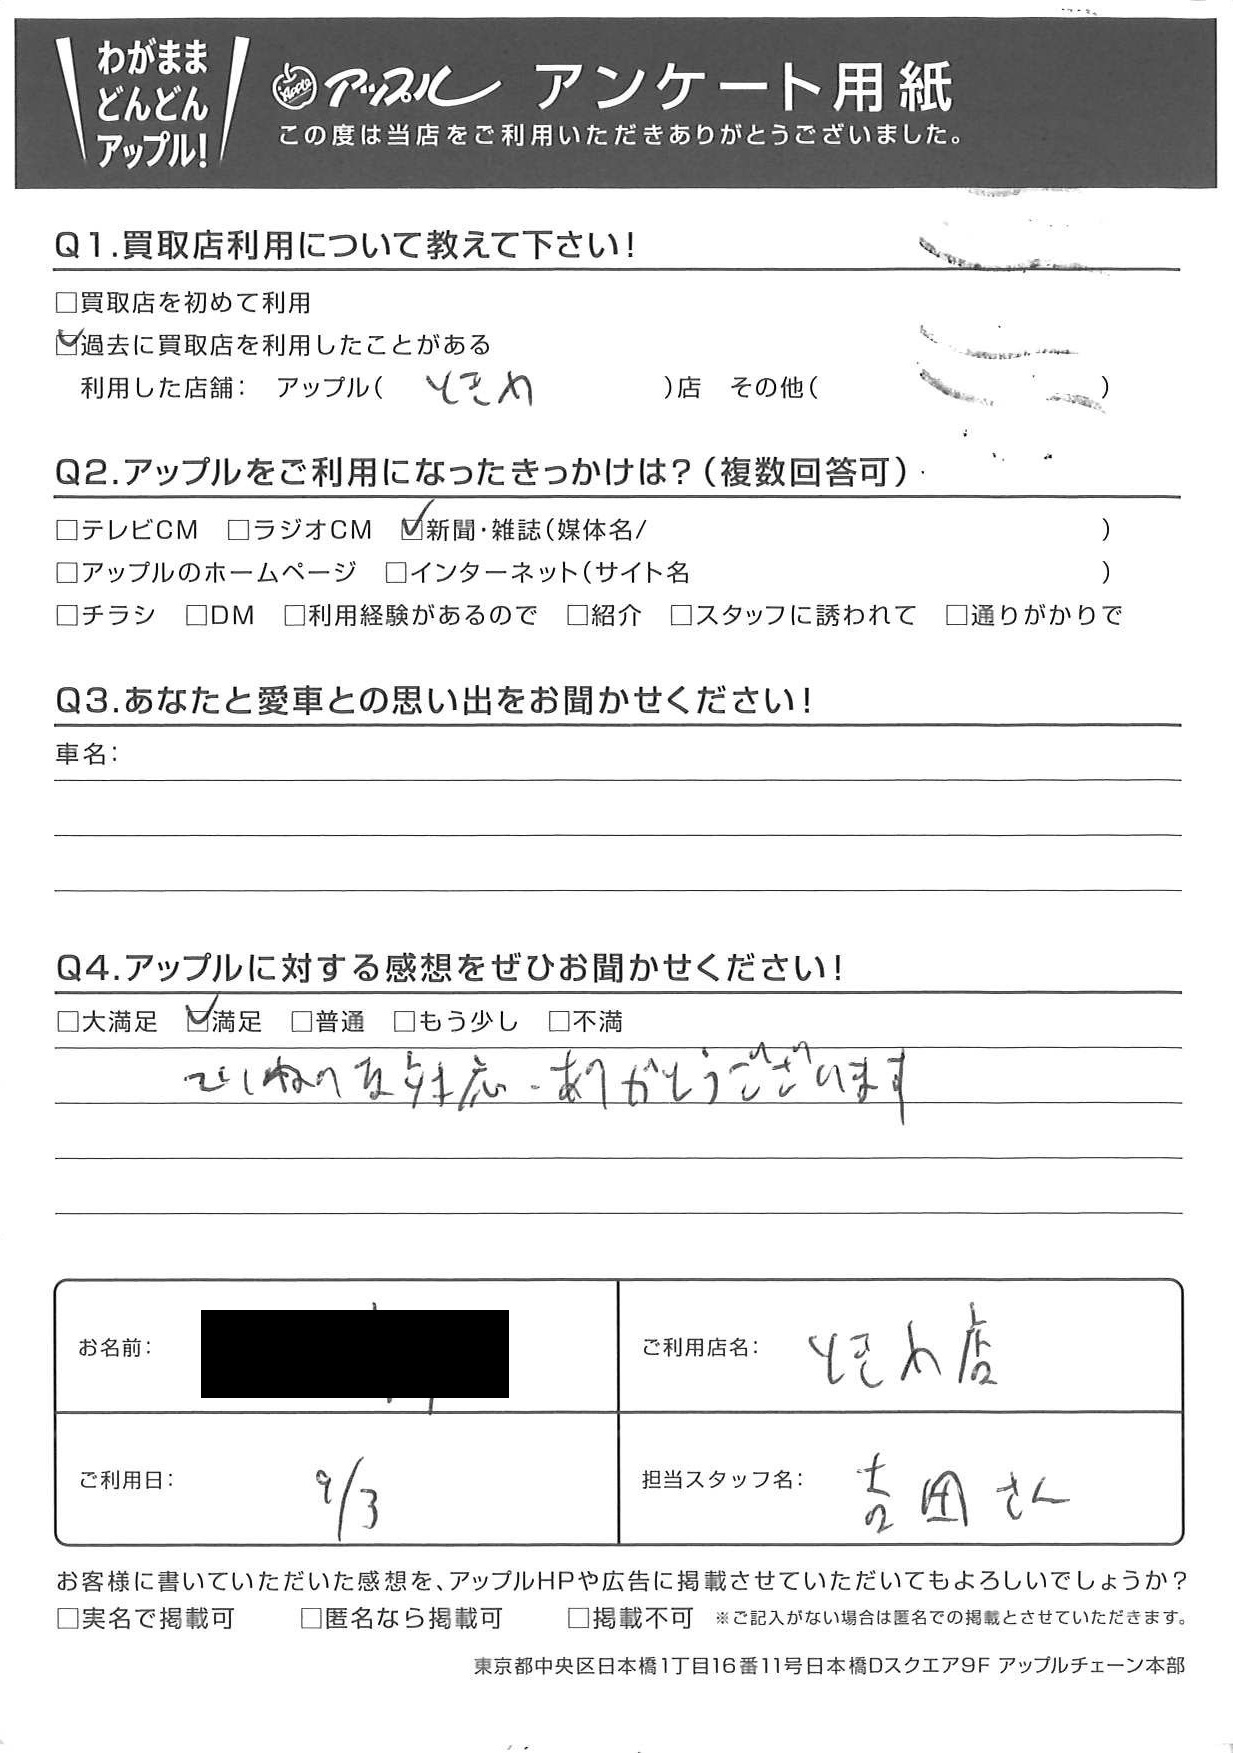 わがまま
どんどん
アップル!
Apple アップル アンケート用紙
この度は当店をご利用いただきありがとうございました。
Q1.買取店利用について教えて下さい!
□買取店を初めて利用
☑過去に買取店を利用したことがある
利用した店舗: アップル( ときわ )店 その他( )
Q2.アップルをご利用になったきっかけは?(複数回答可)
□テレビCM □ラジオCM ☑新聞・雑誌(媒体名/ )
□アップルのホームページ □インターネット(サイト名 )
□チラシ □DM □利用経験があるので □紹介 □スタッフに誘われて □通りがかりで
Q3.あなたと愛車との思い出をお聞かせください!
車名:
Q4.アップルに対する感想をぜひお聞かせください!
□大満足 ☑満足 □普通 □もう少し □不満
ていねいな対応、ありがとうございます
お名前:
ご利用店名: ときわ店
ご利用日: 9/3
担当スタッフ名: 吉田さん
お客様に書いていただいた感想を、アップルHPや広告に掲載させていただいてもよろしいでしょうか?
□実名で掲載可 □匿名なら掲載可 □掲載不可 ※ご記入がない場合は匿名での掲載とさせていただきます。
東京都中央区日本橋1丁目16番11号日本橋Dスクエア9F アップルチェーン本部